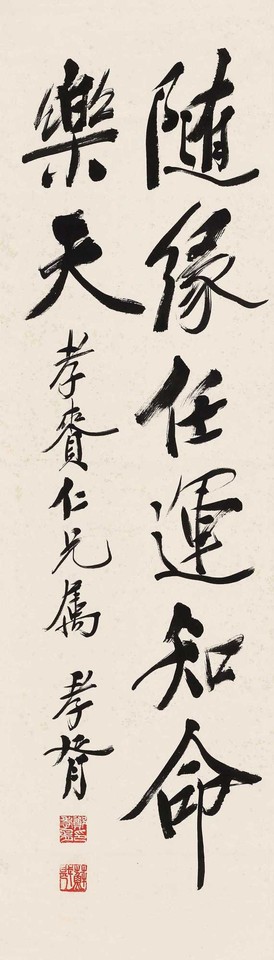 随缘任運知命
樂天
孝賚仁兄属
孝胥